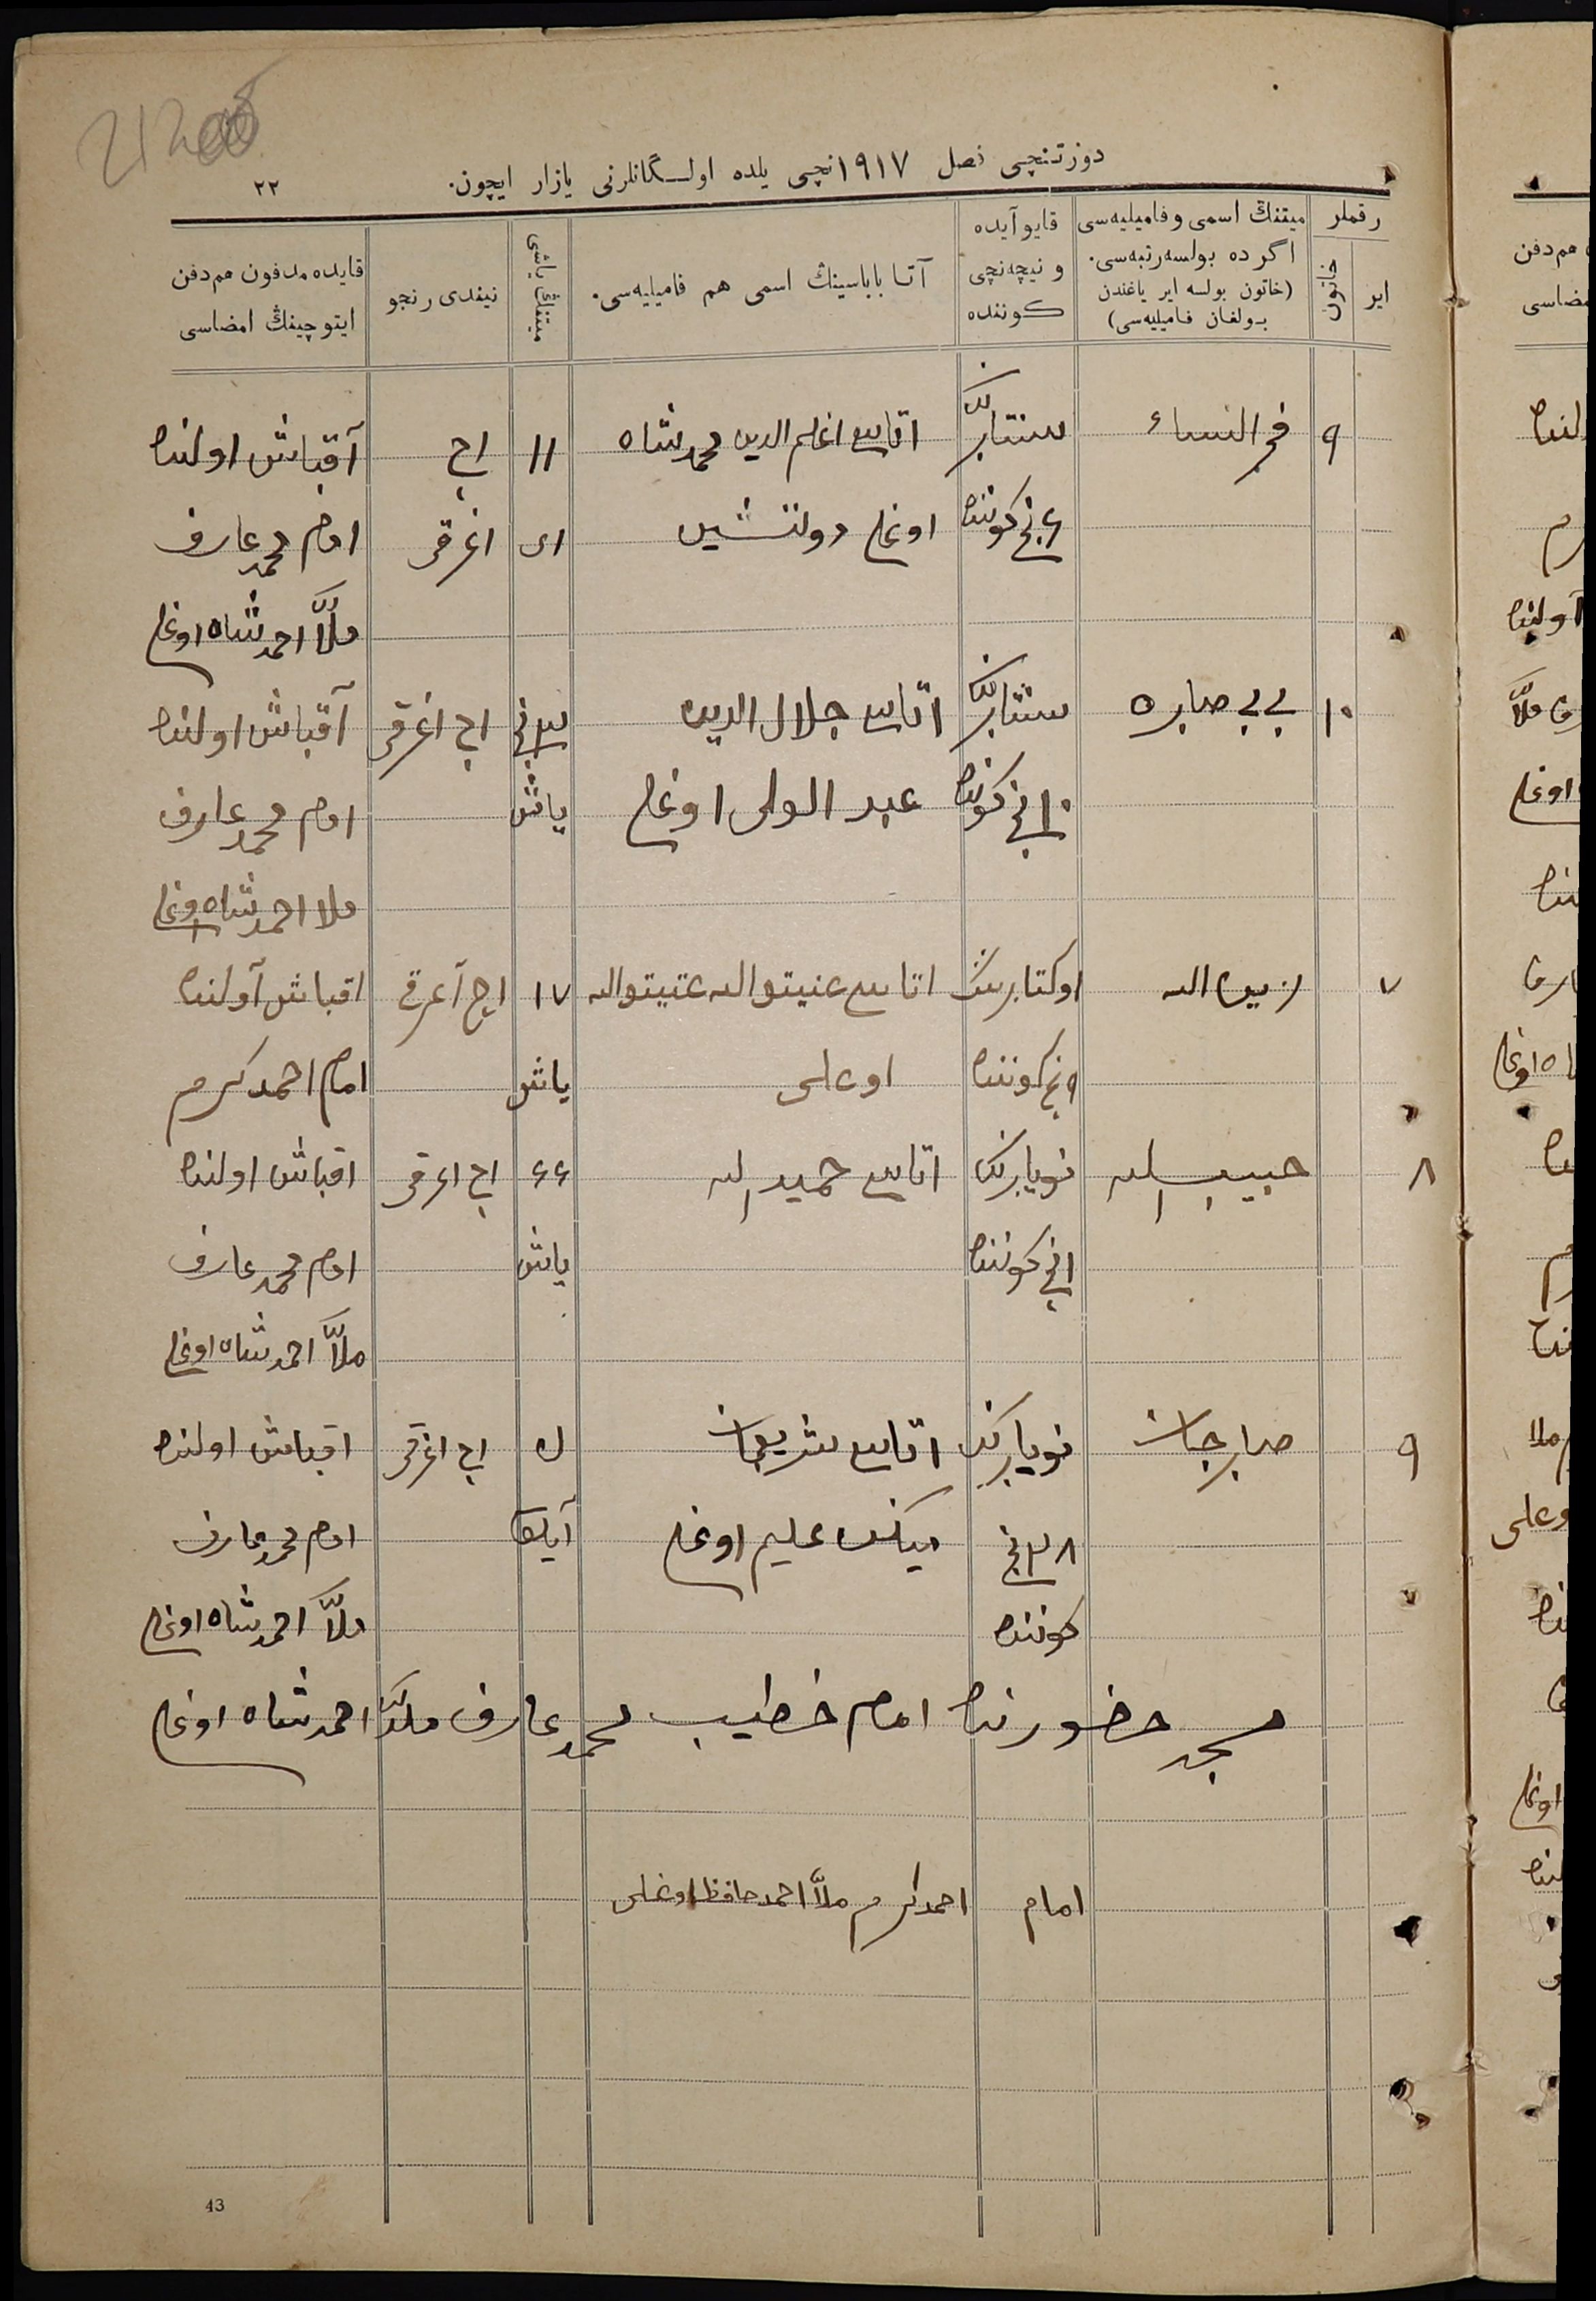 دورتنچی فصل ۱۹۱۷نچی یلده اولـگانلرنی یازار ایچون.
۲۲
رقملر
ایر
خاتون
میتنڭ اسمی و فامیلیه‌سی
اگر ده بولسه رتبه‌سی.
(خاتون بولسه ایر یاغندن
بولغان فامیلیه‌سی)
قایو آیده
و نیچه‌نچی
کوننده
آتا باباسینڭ اسمی هم فامیلیه‌سی.
میتنڭ یاشی
نیندی رنجو
قایده مدفون هم دفن
ایتوچینڭ امضاسی
۹ فخر النساء سنتابرنڭ اتاسی اعلم الدین محمدشاه ۱۱ اچ آقباش اولنده
نچی کوننده اوغلی دولتشین ای اغرقی امام محمد عارف
ملاّ احمدشاه اوغلی
۱۰ بی بی صابره سنتابرنڭ اتاسی جلال الدین ۳نچی اچ اغرقی آقباش اولنده
۱۰نچی کوننده عبد الولی اوغلی یاش امام محمد عارف
ملا احمدشاه اوغلی
۷ زین الله اوکتابرنڭ اتاسی ۱۷ اچ آغرقی اقباش آولنده
۹نچی کوننده اوغلی یاش امام احمدکرم
۸ حبیب الله نویابرنڭ اتاسی حمید الله ۶۶ اچ اغرقی اقباش اولنده
۱نچی کوننده یاش امام محمد عارف
ملاّ احمدشاه اوغلی
۹ صابرجان نویابرنڭ اتاسی شریفجان ۵ اچ اغرقی اقباش اولنده
۲۸نچی اوغلی آیلق امام محمد عارف
کوننده ملاّ احمدشاه اوغلی
مسجد حضورنده امام خطیب محمد عارف ملا احمدشاه اوغلی
امام احمدکرم ملاّ احمد حافظ اوغلی
43